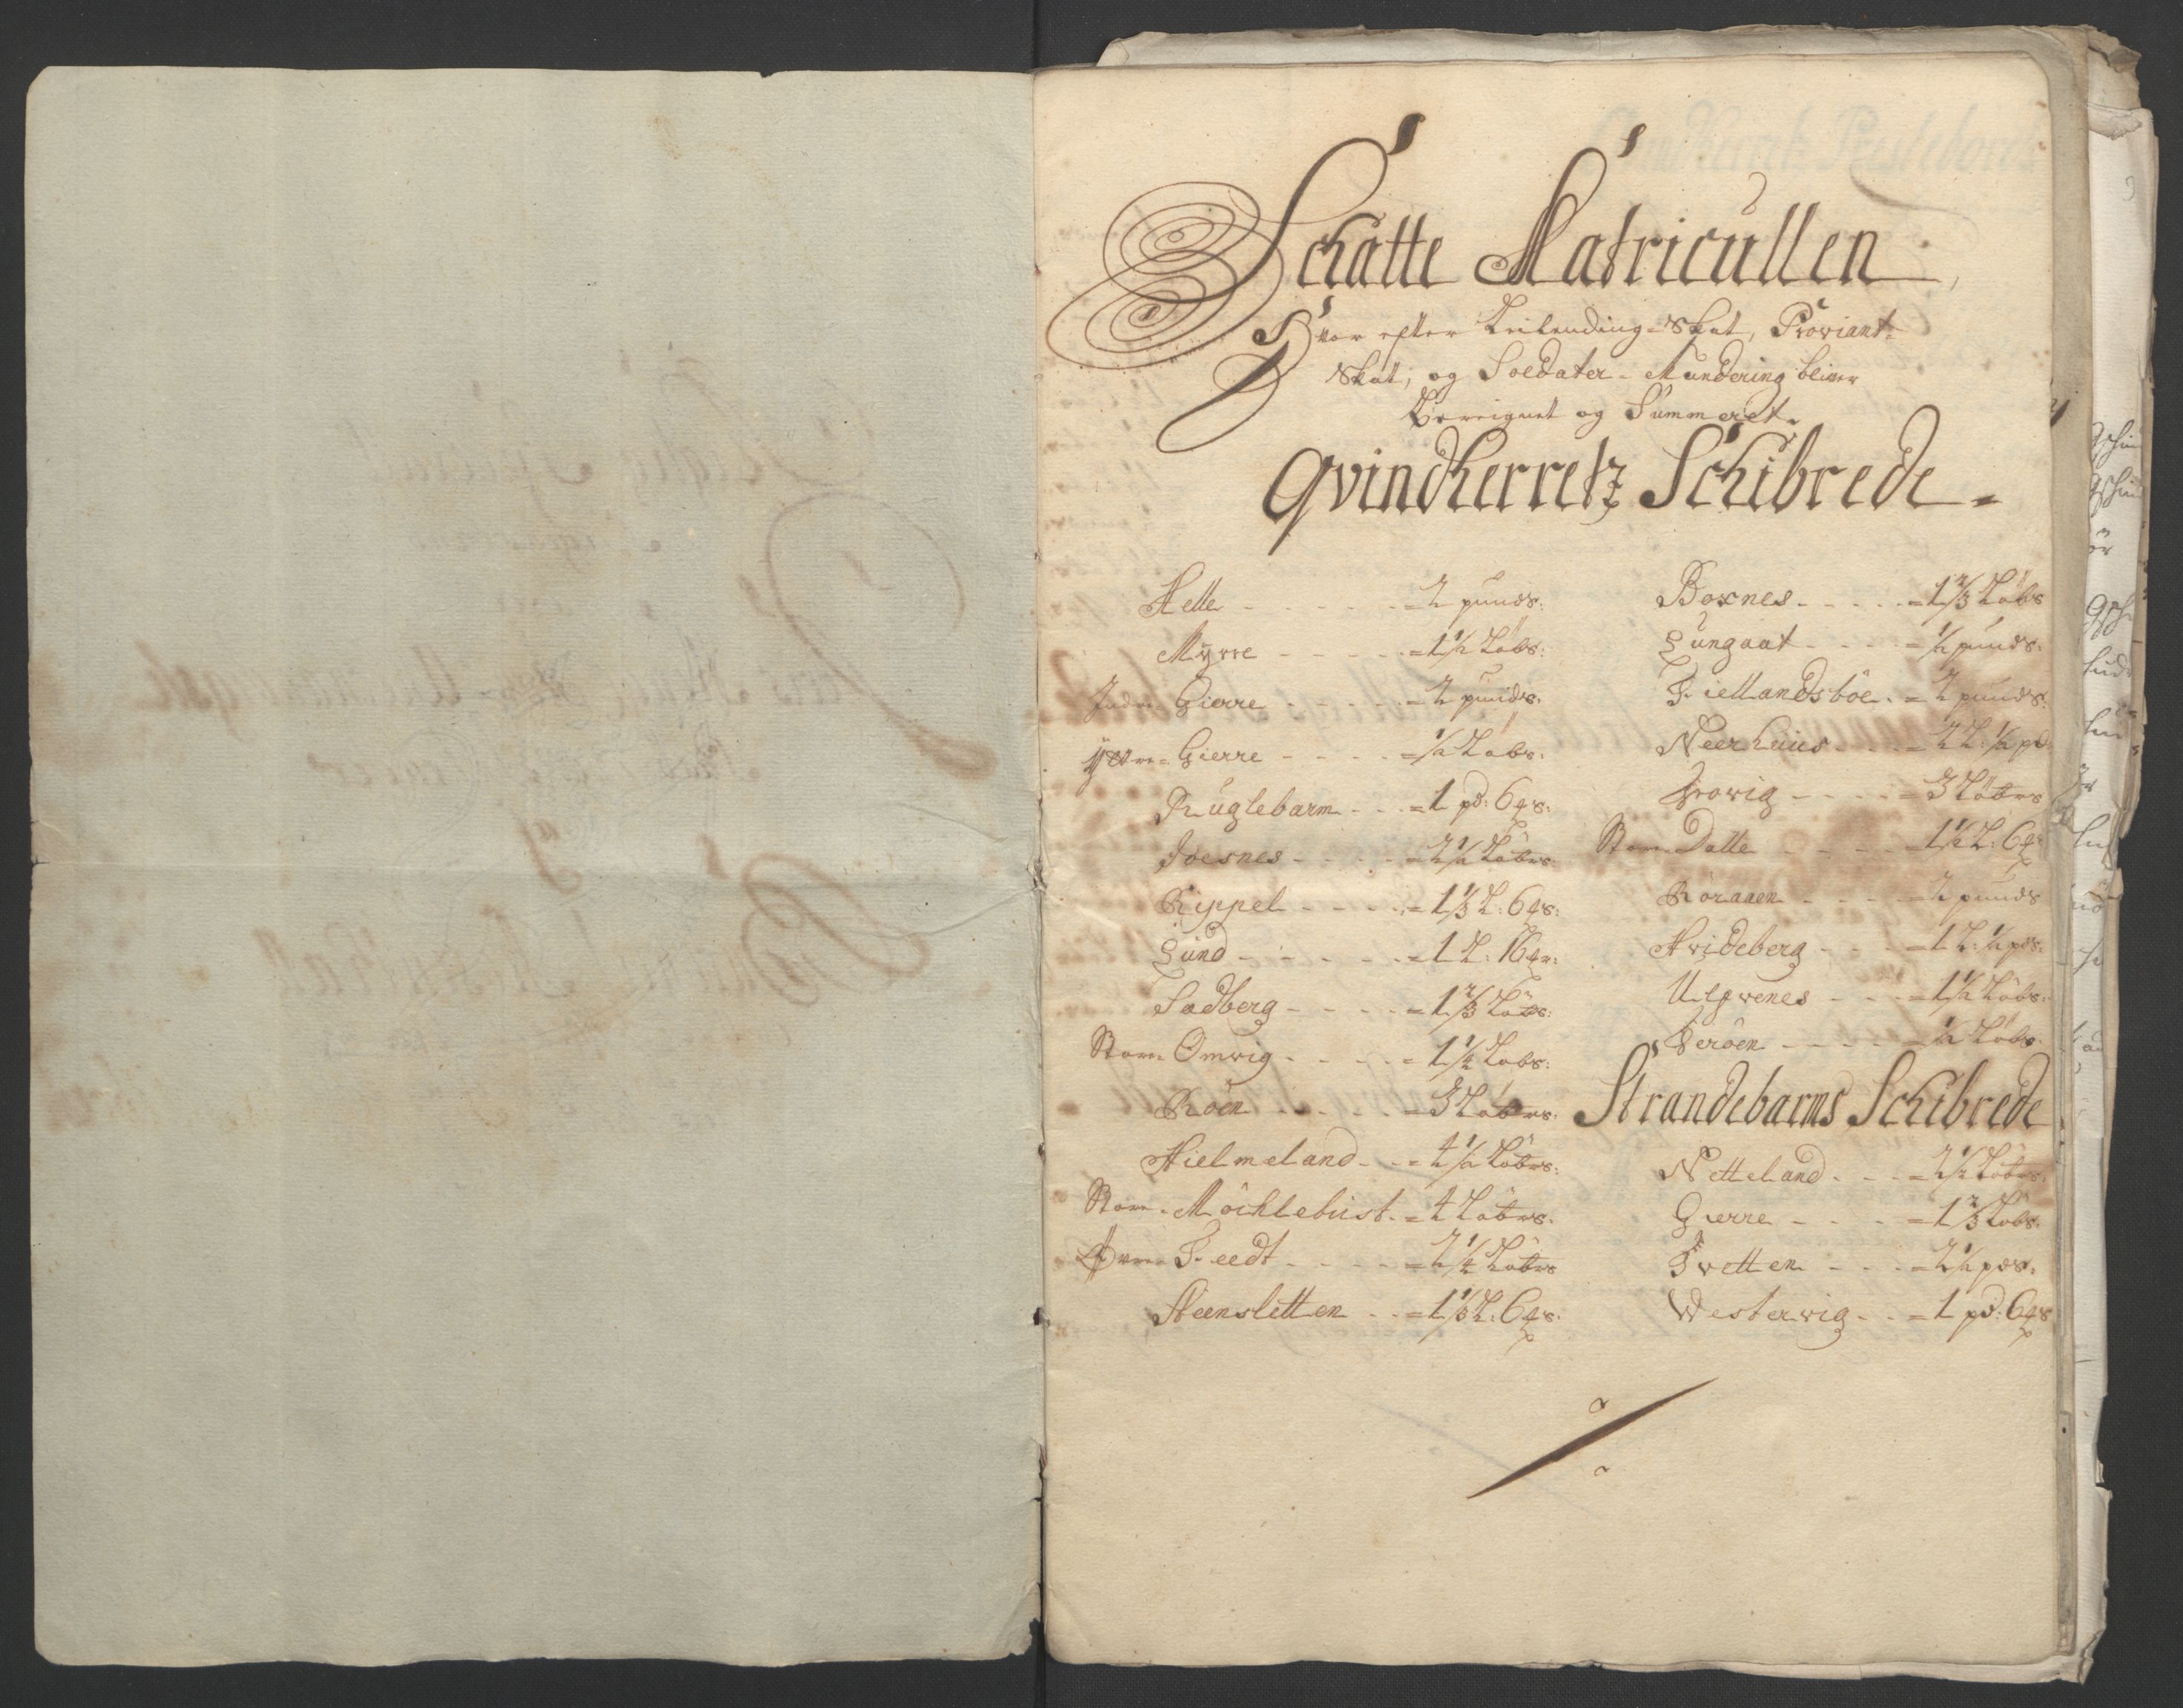 Schatte Matricullen
Hvor efter Leilending-Skat, Proviant-
Skat, og Soldater-Mundering bliver
Bereignet og Summeret.
Qvindherretz Schibrede
Helle - - - = 2 punds:
Myrre - - - = 1½ Löbs:
Indre Gierre - - - = 2 punds:
Yttre Gierre - - - = ½ Löbs:
Ruglebarm - - = 1 pd: 6 qr:
Joesnes - - - = 2½ Löbrs:
Rippel - - - = 1⅓ L: 6 qr:
Lund - - - = 1 L: 16 qr:
Sodberg - - - = 1⅔ Löbs:
Store Omvig - - - = 1¼ Löbs:
Röen - - - = 3 Löbrs:
Hielmeland - - = 4½ Löbrs:
Store Möchlebust = 4 Löbrs:
Övre Feedt - - - = 2¼ Löbrs
Steensletten - - = 1⅓ L: 6 qr:
Boxnes - - - = 1⅔ Löbs
Lungaat - - - = ½ punds:
Fiellandsböe = 2 punds:
Neerhuus - - - = 2 L: ½ pd:
- - - = 3 Löbrs
Store Dalle - - - 1½ L: 6 qr
Röranen - - - = 2 punds
Hvideberg - - - = 1 L: ½ pds:
Ulfvenes - - - = 1½ Löbs:
Teröen - - - = ½ Löbs:
Strandebarms Schibrede
Netteland - - = 2½ Löbrs:
Gierre - - - = 1⅔ Löbs:
Tvetten - - - = 2½ pds:
Westervig - - = 1 pd: 6 qr